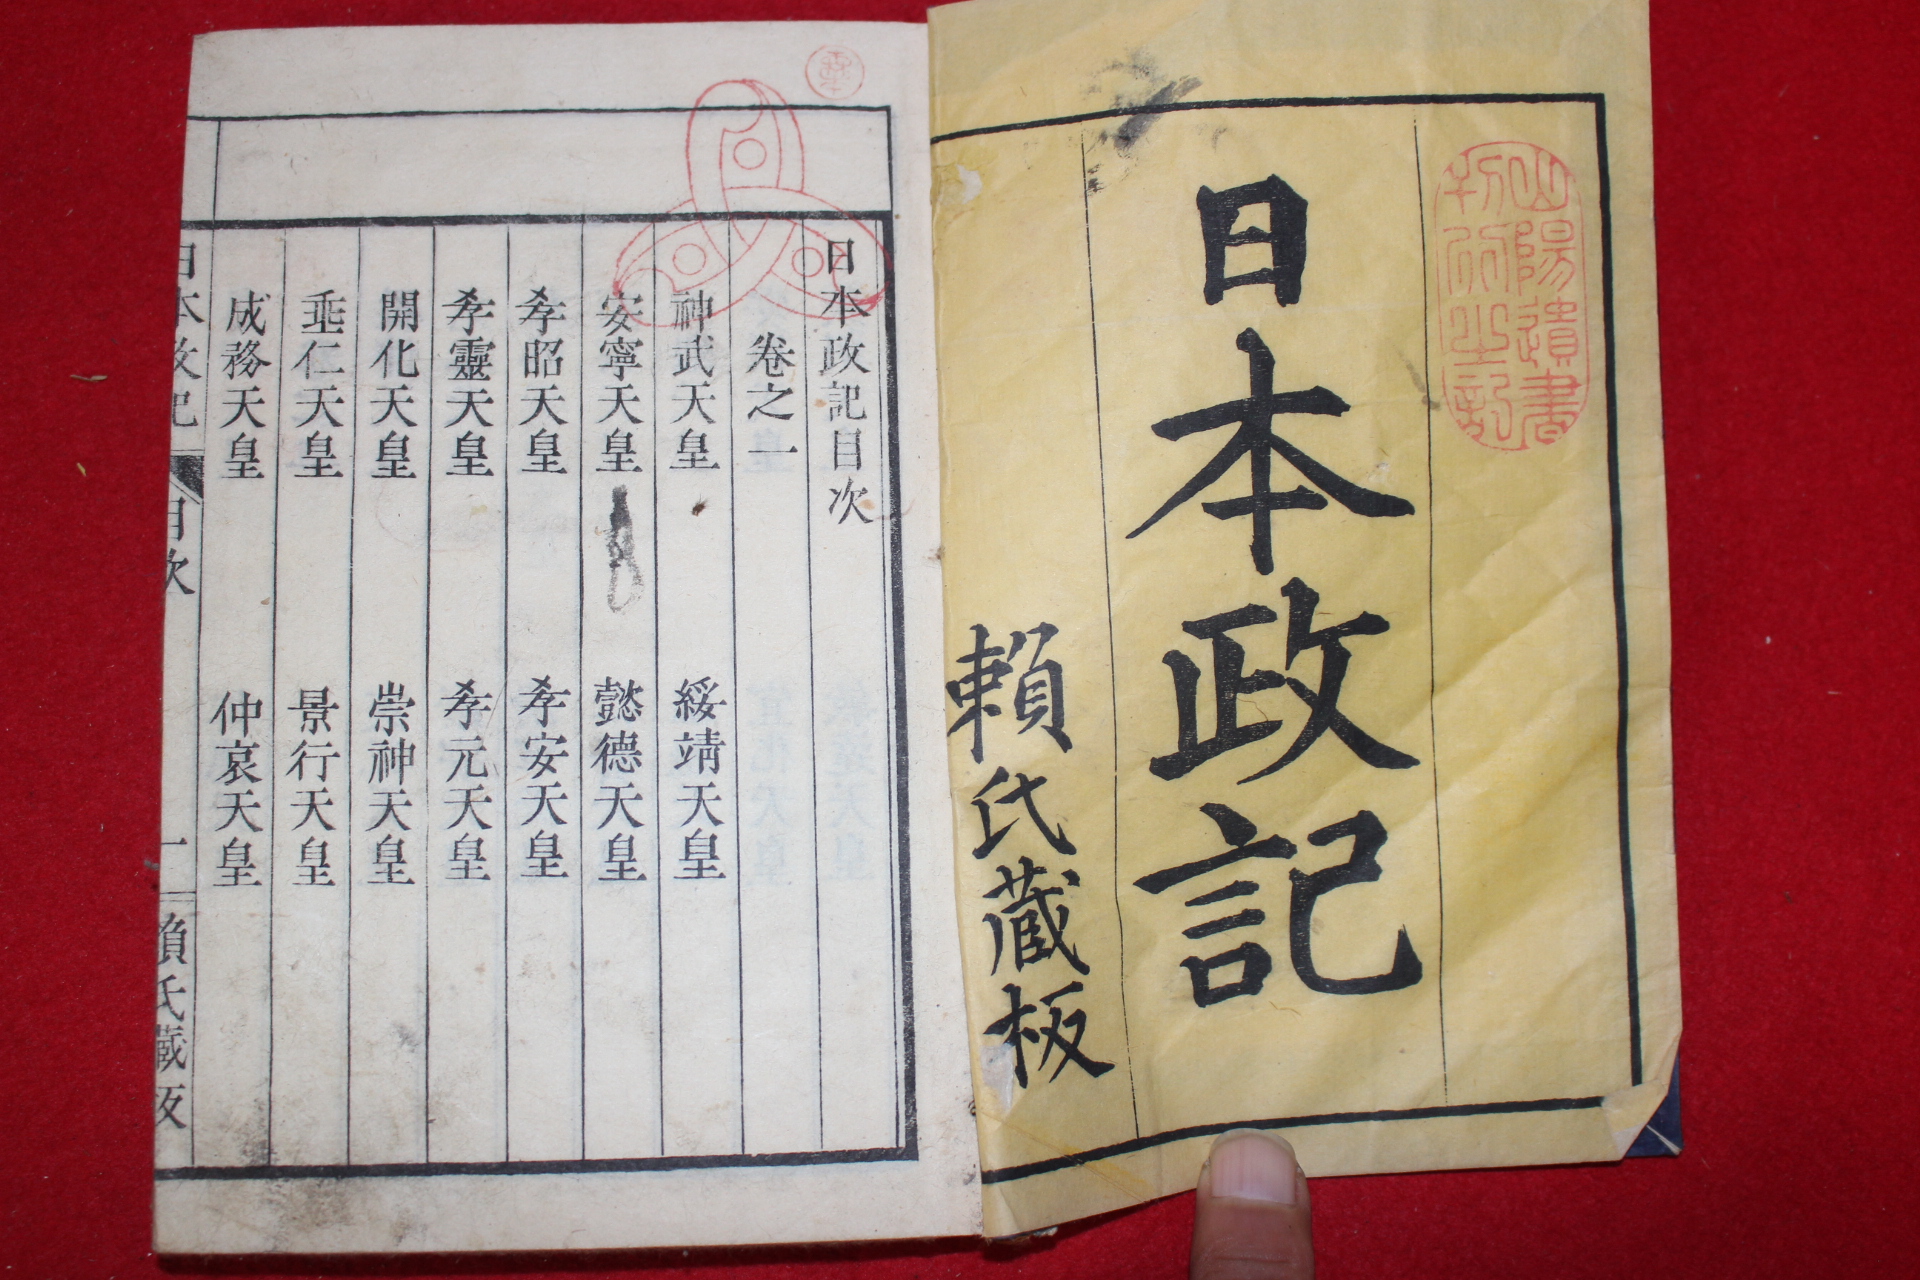 山陽遺書
日本政記
賴氏藏板
日本政記目次
卷之一
神武天皇 綏靖天皇
安寧天皇 懿德天皇
孝昭天皇 孝安天皇
孝靈天皇 孝元天皇
開化天皇 崇神天皇
垂仁天皇 景行天皇
成務天皇 仲哀天皇
日本政記 目次 一 賴氏藏板